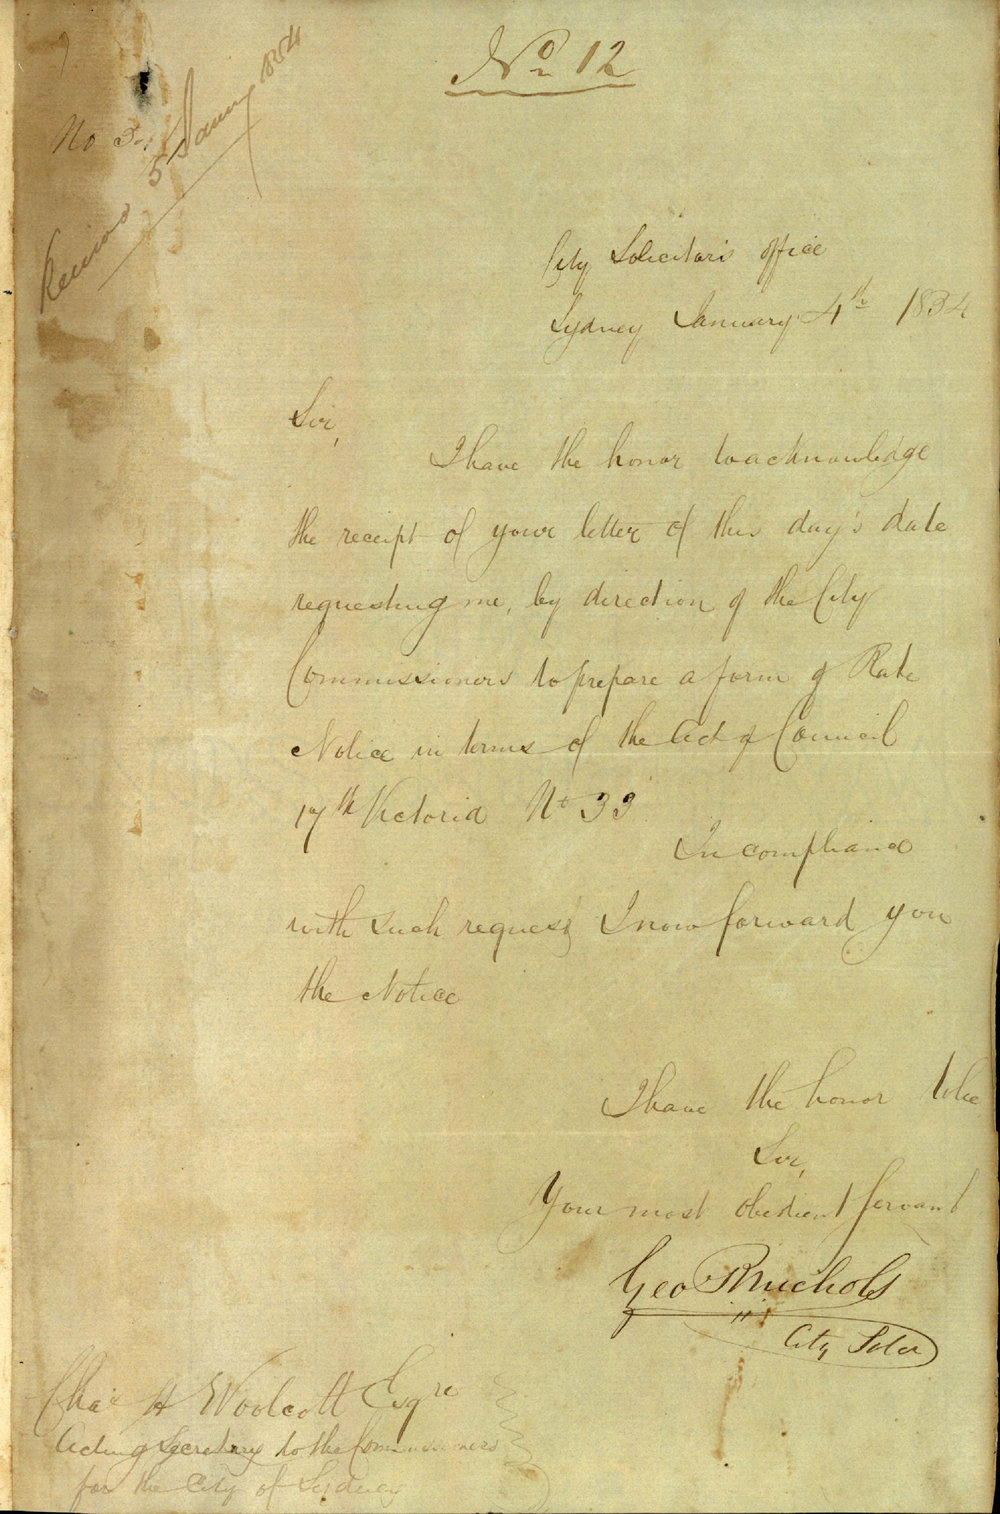 No 12
No 5
Received 5 January 1854
City Solicitor's Office
Sydney January 4th 1854
Sir,
I have the honor to acknowledge
the receipt of your letter of this day's date
requesting me, by direction of the City
Commissioners to prepare a form of Rate
Notice in terms of the Act of Council
17th Victoria No 33
In compliance
with such request I now forward you
the Notice
I have the honor to be
Sir,
Your most obedient servant
Geo R Nichols
City Solr
Chas H Woolcott Esqre
Acting Secretary to the Commissioners
for the City of Sydney